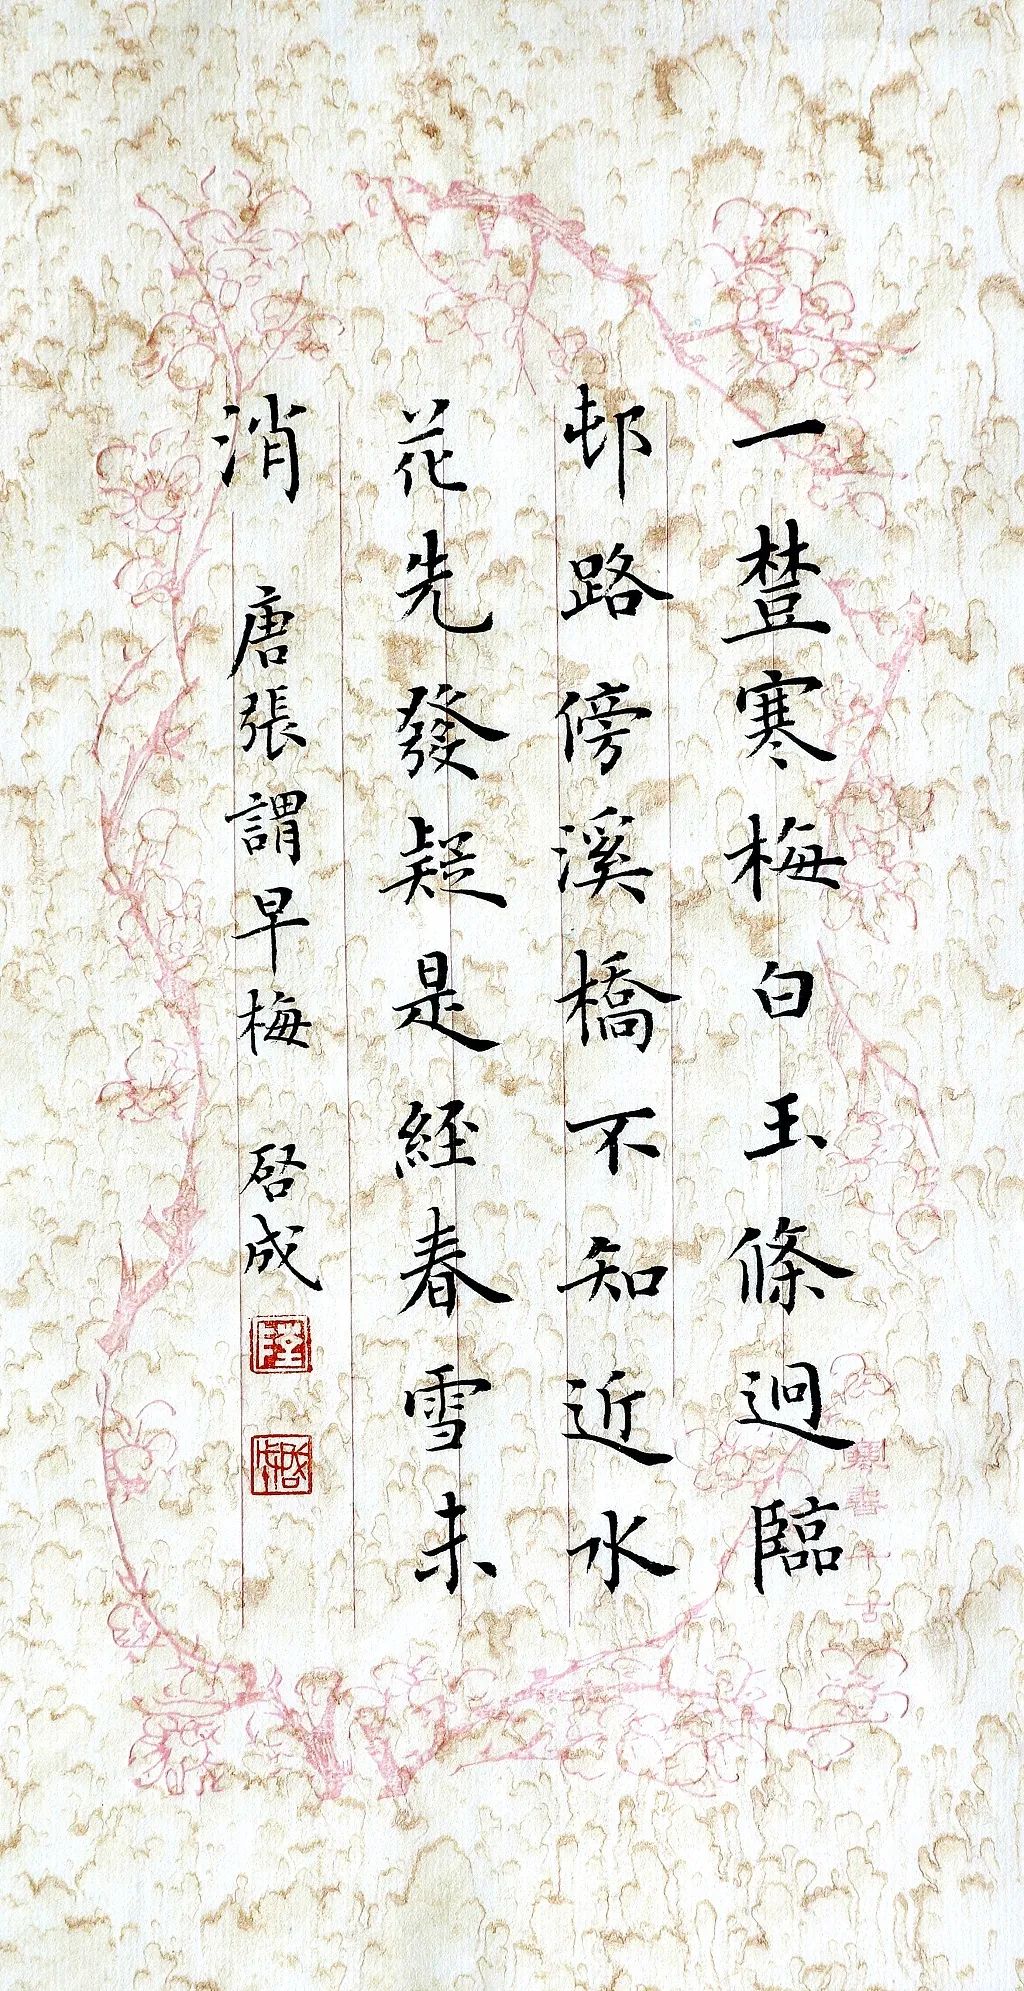 一樹寒梅白玉條迥臨
邨路傍溪橋不知近水
花先發疑是經春雪未
消 唐張謂早梅 啓成